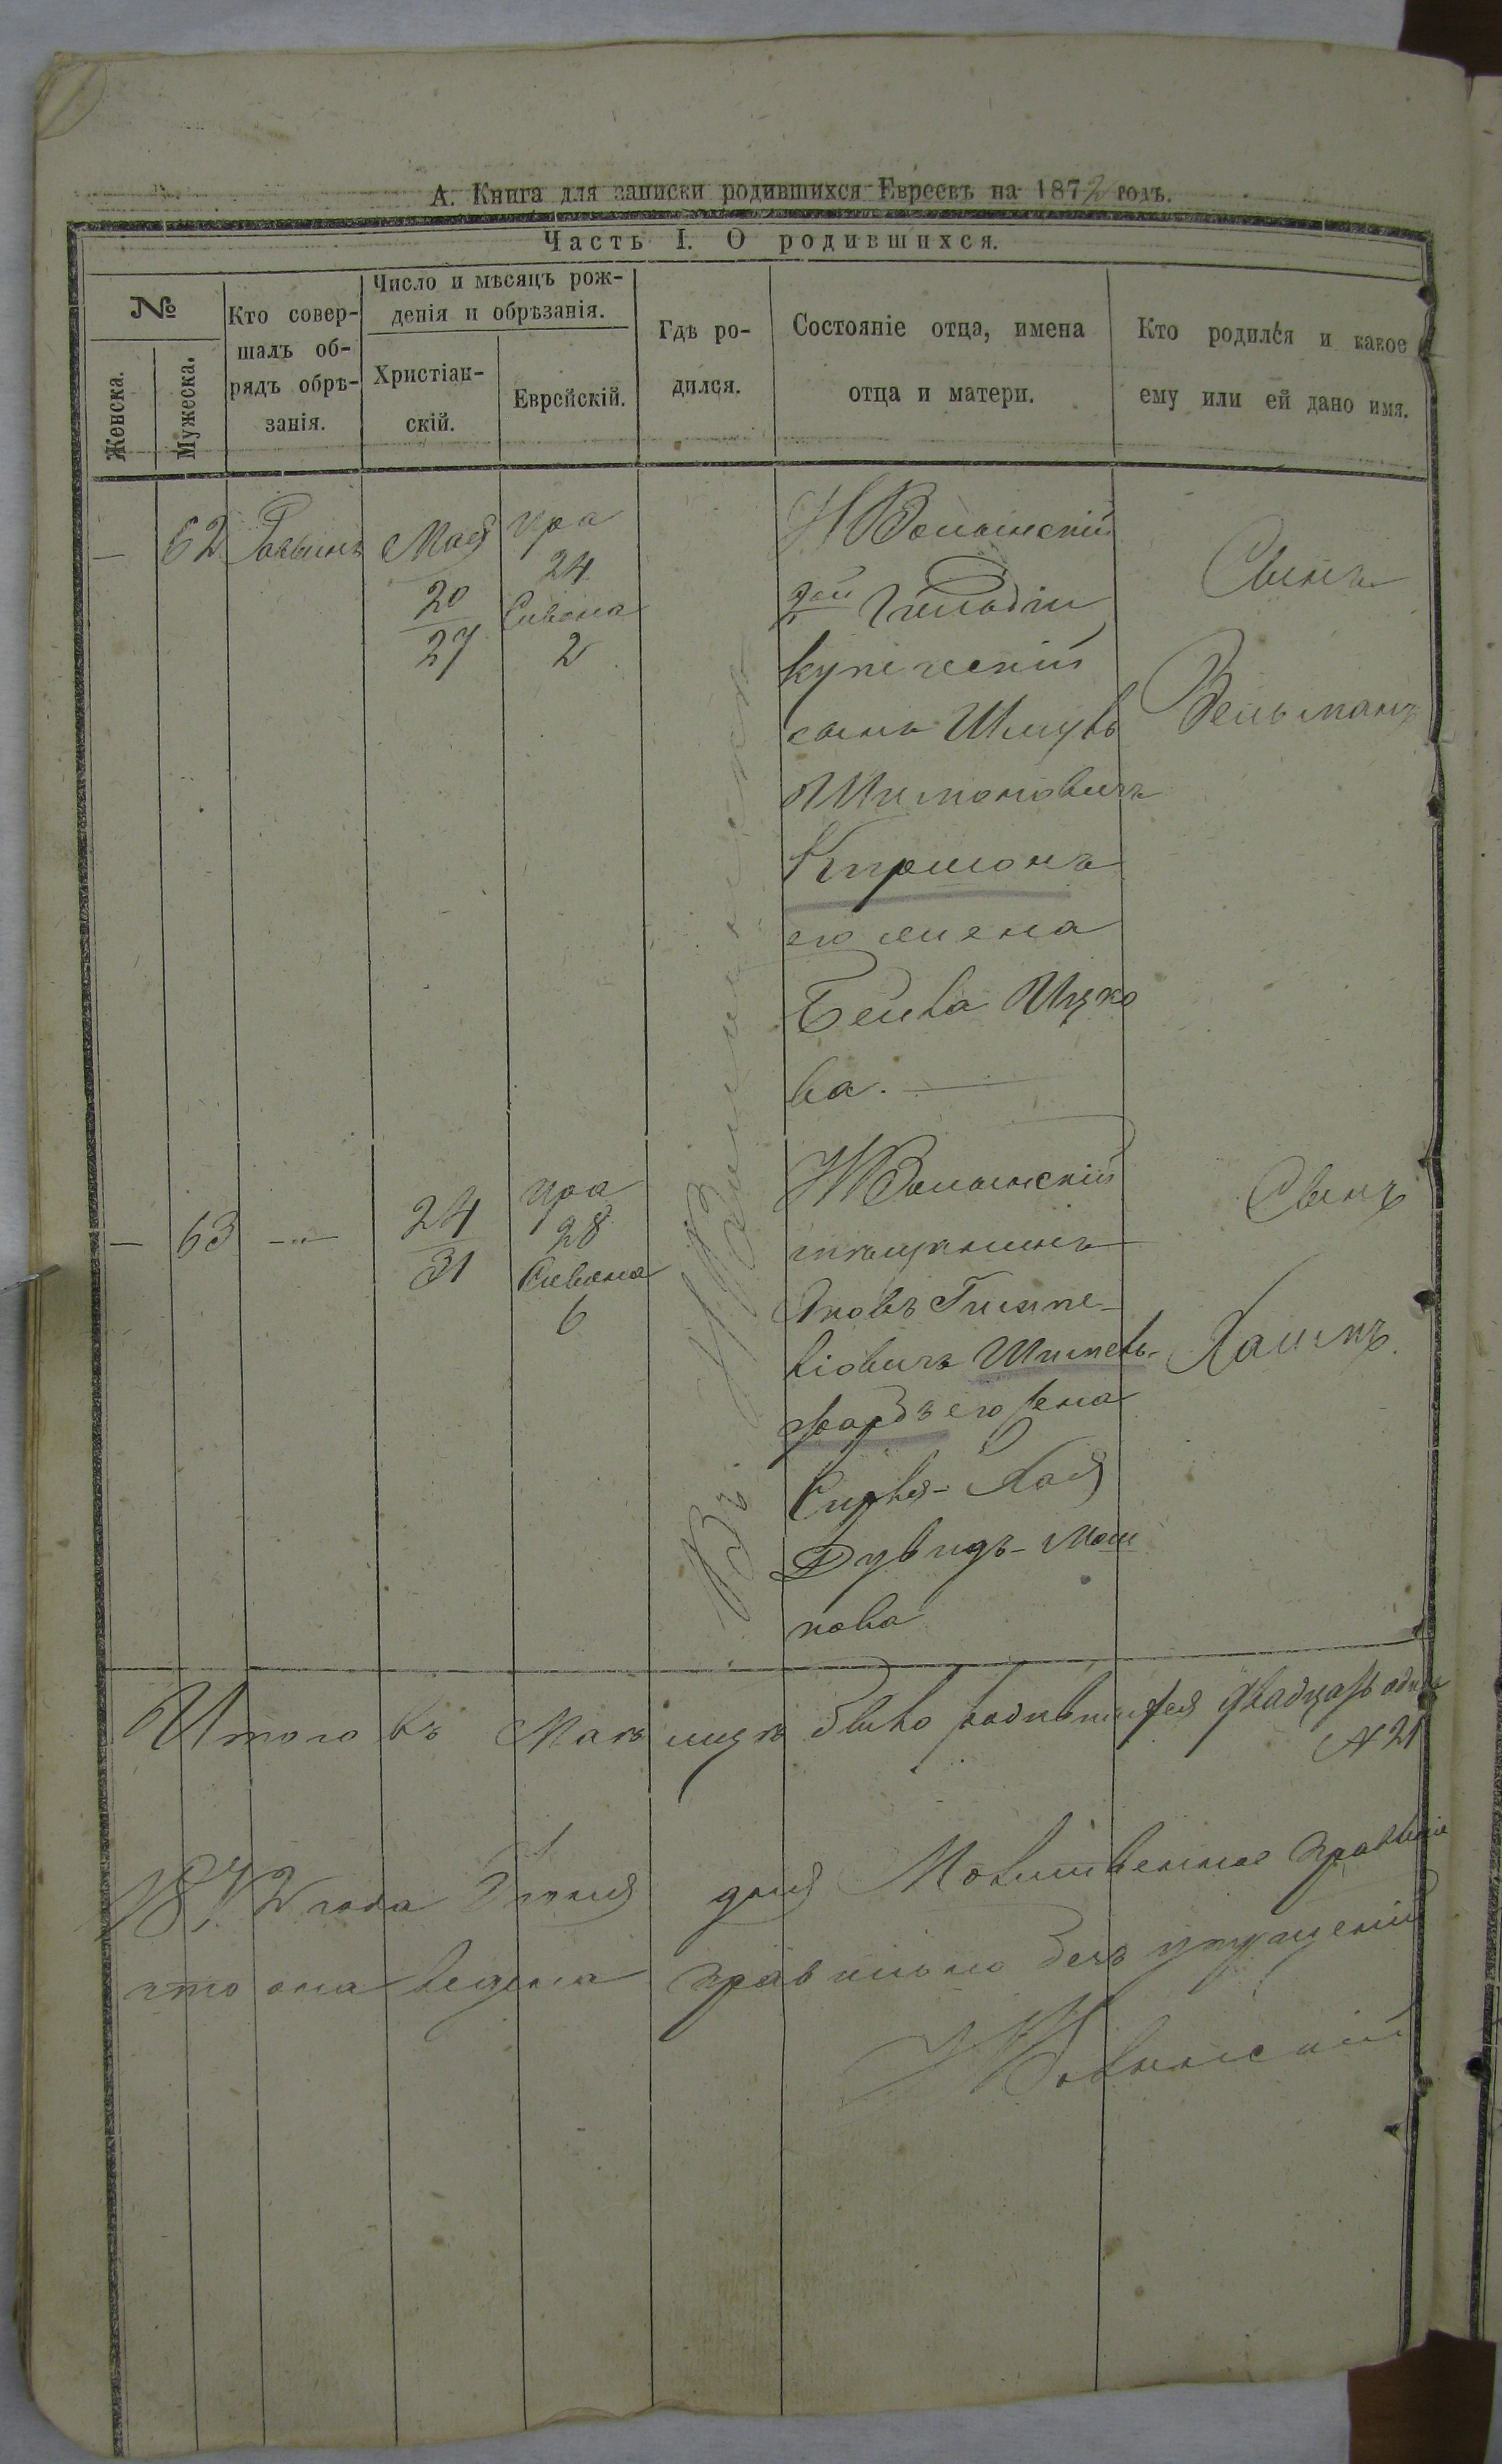 А. Книга для записки родившихся Евреевъ на 1872 годъ.
Часть I. О родившихся.
№
Женска.
Мужеска.
Кто совер-
шалъ об-
рядъ обрѣ-
занія.
Число и мѣсяцъ рож-
денія и обрѣзанія.
Христіан-
скій.
Еврейскій.
Гдѣ ро-
дился.
Состояніе отца, имена
отца и матери.
Кто родился и какое
ему или ей дано имя.
—
62
Раввинъ
Мая
20
27
Ира
24
Сивана
2
НВолынскій
2ой Гильдіи
купеческій
сынъ Шмуль
Шимоновичъ
Киршонъ
его жена
Бейла Ицко
ва. —
Сынъ
Зельманъ
—
63
-"-
24
31
Ира
28
Сивана
6
НВолынскій
мѣщанинъ
Яковъ Гимпе-
ліовичъ Шпиль-
фардъ его жена
Сирля-Хая
Дувидъ-Мош
кова
Сынъ
Хаимъ.
Въ НВолынскѣ
Итого въ Маѣ мцѣ было родившихся двадцать одинъ
№ 21
1872 года Іюня дня Молитвенное правленіе
что она ведена правильно безъ упущеній